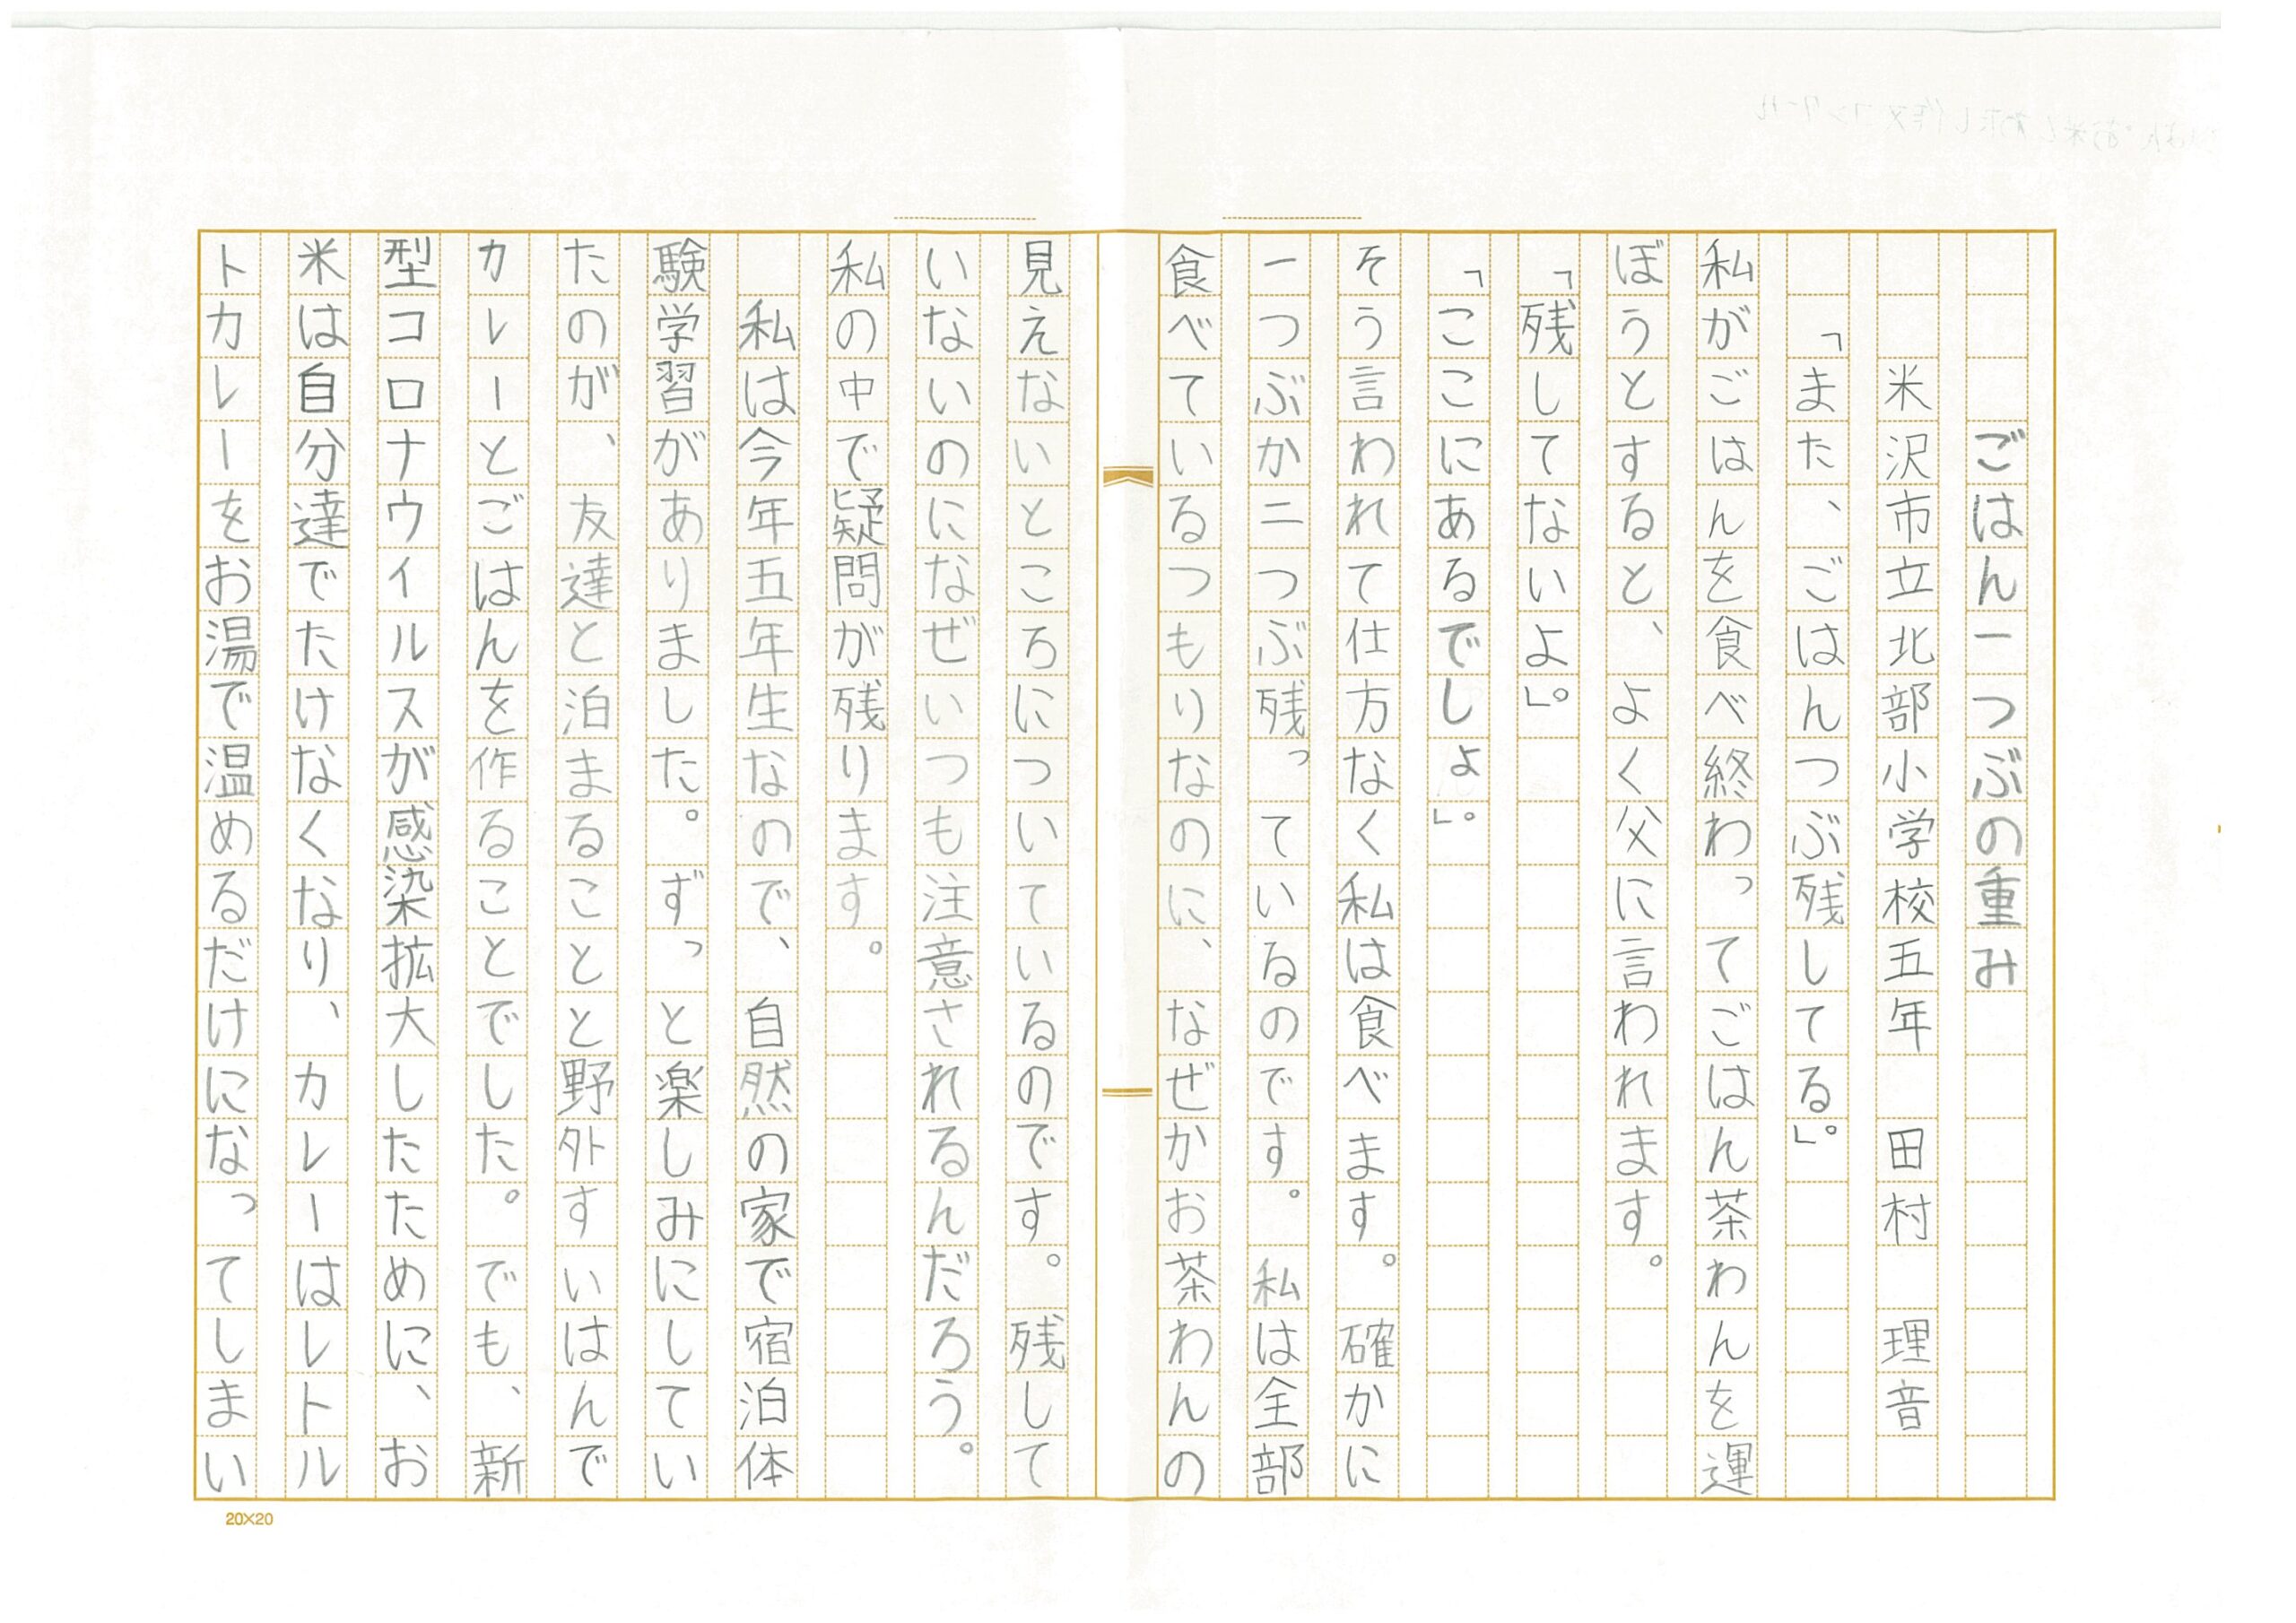 ごはん一つぶの重み
米沢市立北部小学校五年　田村　理音
「また、ごはんつぶ残してる」。
私がごはんを食べ終わってごはん茶わんを運
ぼうとすると、よく父に言われます。
「残してないよ」。
「ここにあるでしょ」。
そう言われて仕方なく私は食べます。確かに
一つぶか二つぶ残っているのです。私は全部
食べているつもりなのに、なぜかお茶わんの
見えないところについているのです。残して
いないのになぜいつも注意されるんだろう。
私の中で疑問が残ります。
私は今年五年生なので、自然の家で宿泊体
験学習がありました。ずっと楽しみにしてい
たのが、友達と泊まることと野外すいはんで
カレーとごはんを作ることでした。でも、新
型コロナウイルスが感染拡大したために、お
米は自分達でたけなくなり、カレーはレトル
トカレーをお湯で温めるだけになってしまい
20×20